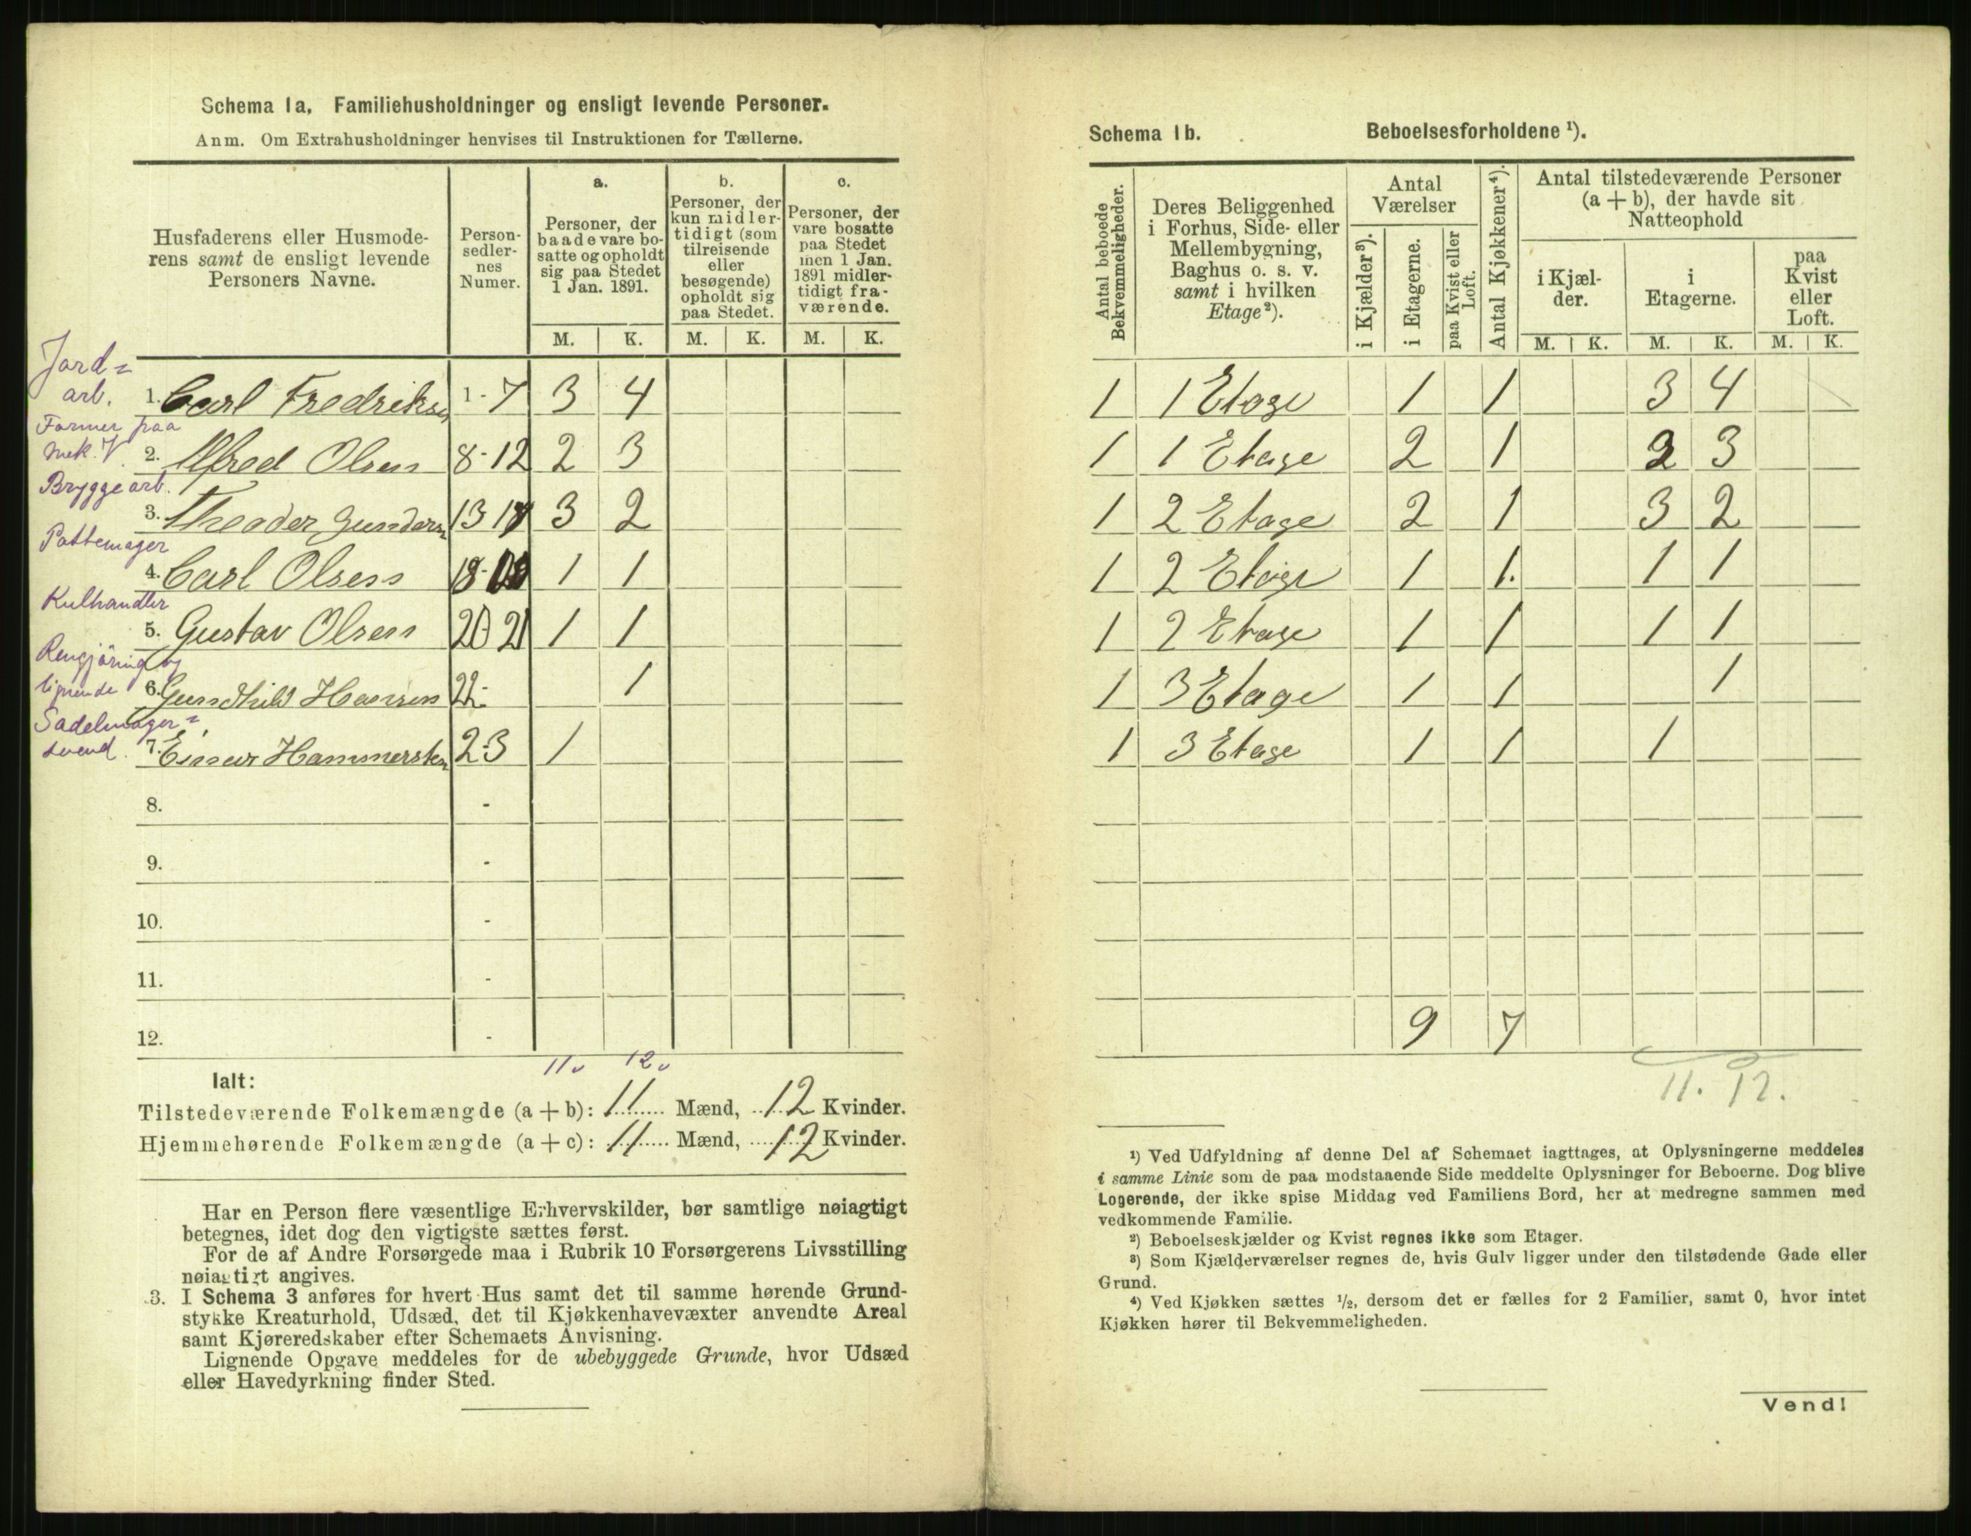 Schema 1a. Familiehusholdninger og ensligt levende Personer.
Anm. Om Extrahusholdninger henvises til Instruktionen for Tællerne.
Husfaderens eller Husmode-
rens samt de ensligt levende
Personers Navne.
Person-
sedler-
nes
Numer.
a.
Personer, der
baade vare bo-
satte og opholdt
sig paa Stedet
1 Jan. 1891.
b.
Personer, der
kun midler-
tidigt (som
tilreisende
eller
besøgende)
opholdt sig
paa Stedet.
c.
Personer, der
vare bosatte
paa Stedet
men 1 Jan.
1891 midler-
tidigt fra-
værende.
M. K. M. K. M. K.
Jord=
arb.
1. Carl Fredriksen 1-7 3 4
Former paa
mek. V.
2. Alfred Olsen 8-12 2 3
Bryggearb.
3. Theoder Gundersen 13 17 3 2
Pottemager
4. Carl Olsen 18- 1 1
Kulhandler
5. Gustav Olsen 20-21 1 1
Rengjøring og
lignende
6. Gundhild Hansen 22- 1
Sadelmager=
svend.
7. Einar Hammersten 23 1
8. -
9. -
10. -
11. -
12. -
11 12
Ialt:
Tilstedeværende Folkemængde (a + b): 11 Mænd, 12 Kvinder.
Hjemmehørende Folkemængde (a + c): 11 Mænd, 12 Kvinder.
Har en Person flere væsentlige Erhvervskilder, bør samtlige nøiagtigt
betegnes, idet dog den vigtigste sættes først.
For de af Andre Forsørgede maa i Rubrik 10 Forsørgerens Livsstilling
nøiagtigt angives.
3. I Schema 3 anføres for hvert Hus samt det til samme hørende Grund-
stykke Kreaturhold, Udsæd, det til Kjøkkenhavevæxter anvendte Areal
samt Kjøreredskaber efter Schemaets Anvisning.
Lignende Opgave meddeles for de ubebyggede Grunde, hvor Udsæd
eller Havedyrkning finder Sted.
Schema 1b. Beboelsesforholdene ¹).
Antal beboede
Bekvemmeligheder.
Deres Beliggenhed
i Forhus, Side- eller
Mellembygning,
Baghus o. s. v.
samt i hvilken
Etage²).
Antal
Værelser
i Kjælder³).
i Etagerne.
paa Kvist eller
Loft.
Antal Kjøkkener⁴).
Antal tilstedeværende Personer
(a + b), der havde sit
Natteophold
i Kjæl-
der.
i
Etagerne.
paa
Kvist
eller
Loft.
M. K. M. K. M. K.
1 1 Etage 1 1 3 4
1 1 Etage 2 1 2 3
1 2 Etage 2 1 3 2
1 2 Etage 1 1. 1 1
1 2 Etage 1 1 1 1
1 3 Etage 1 1 1
1 3 Etage 1 1 1
9 7
11. 12.
¹) Ved Udfyldning af denne Del af Schemaet iagttages, at Oplysningerne meddeles
i samme Linie som de paa modstaaende Side meddelte Oplysninger for Beboerne. Dog blive
Logerende, der ikke spise Middag ved Familiens Bord, her at medregne sammen med
vedkommende Familie.
²) Beboelseskjælder og Kvist regnes ikke som Etager.
³) Som Kjælderværelser regnes de, hvis Gulv ligger under den tilstødende Gade eller
Grund.
⁴) Ved Kjøkken sættes ½, dersom det er fælles for 2 Familier, samt 0, hvor intet
Kjøkken hører til Bekvemmeligheden.
Vend!